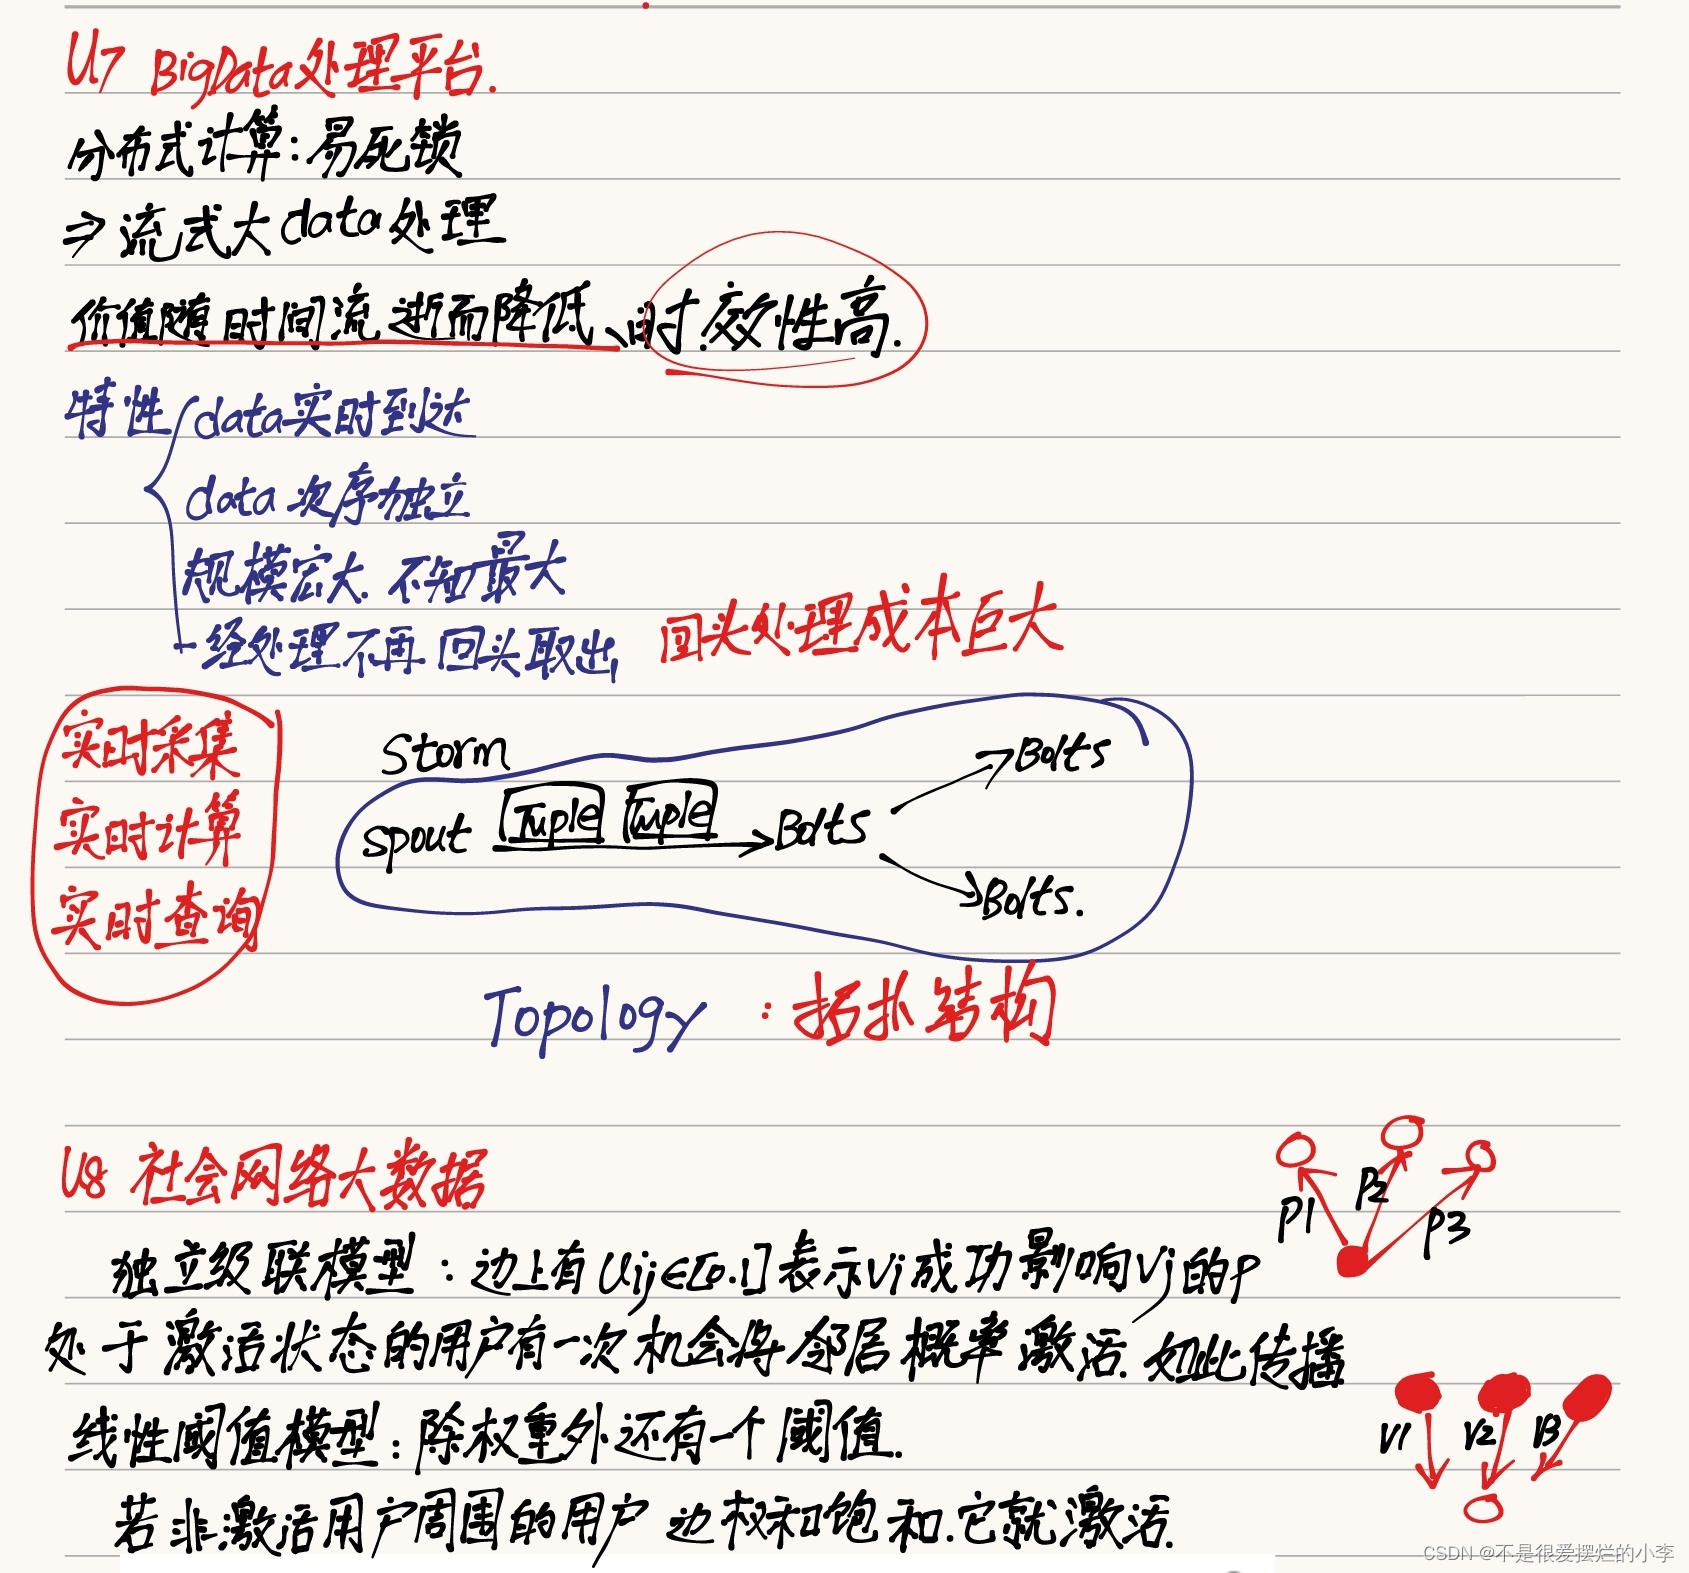 U7 BigData处理平台.
分布式计算:易死锁
⇒流式大data处理
价值随时间流逝而降低、时效性高.
特性 data实时到达
data次序独立
规模宏大.不知最大
一经处理不再回头取出, 回头处理成本巨大
实时采集
实时计算
实时查询
Storm
spout Tuple Tuple Bolts
Bolts
Bolts.
Topology :拓扑结构
U8 社会网络大数据
P1 P2 P3
独立级联模型:边上有Uij∈[0.1]表示Vi成功影响Vj的P
处于激活状态的用户有一次机会将邻居概率激活.如此传播
线性阈值模型:除权重外还有一个阈值.
V1 V2 V3
若非激活用户周围的用户边权和饱和.它就激活.
CSDN @不是很爱摆烂的小李